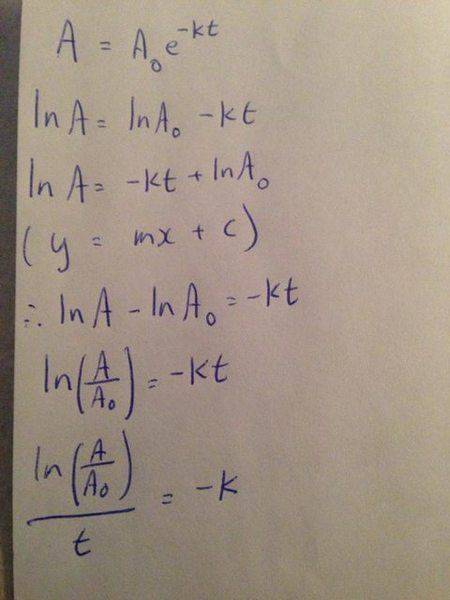 A = A₀e^-kt
ln A = ln A₀ - kt
ln A = -kt + ln A₀
(y = mx + c)
∴ ln A - ln A₀ = -kt
ln(A/A₀) = -kt
ln(A/A₀)/t = -k